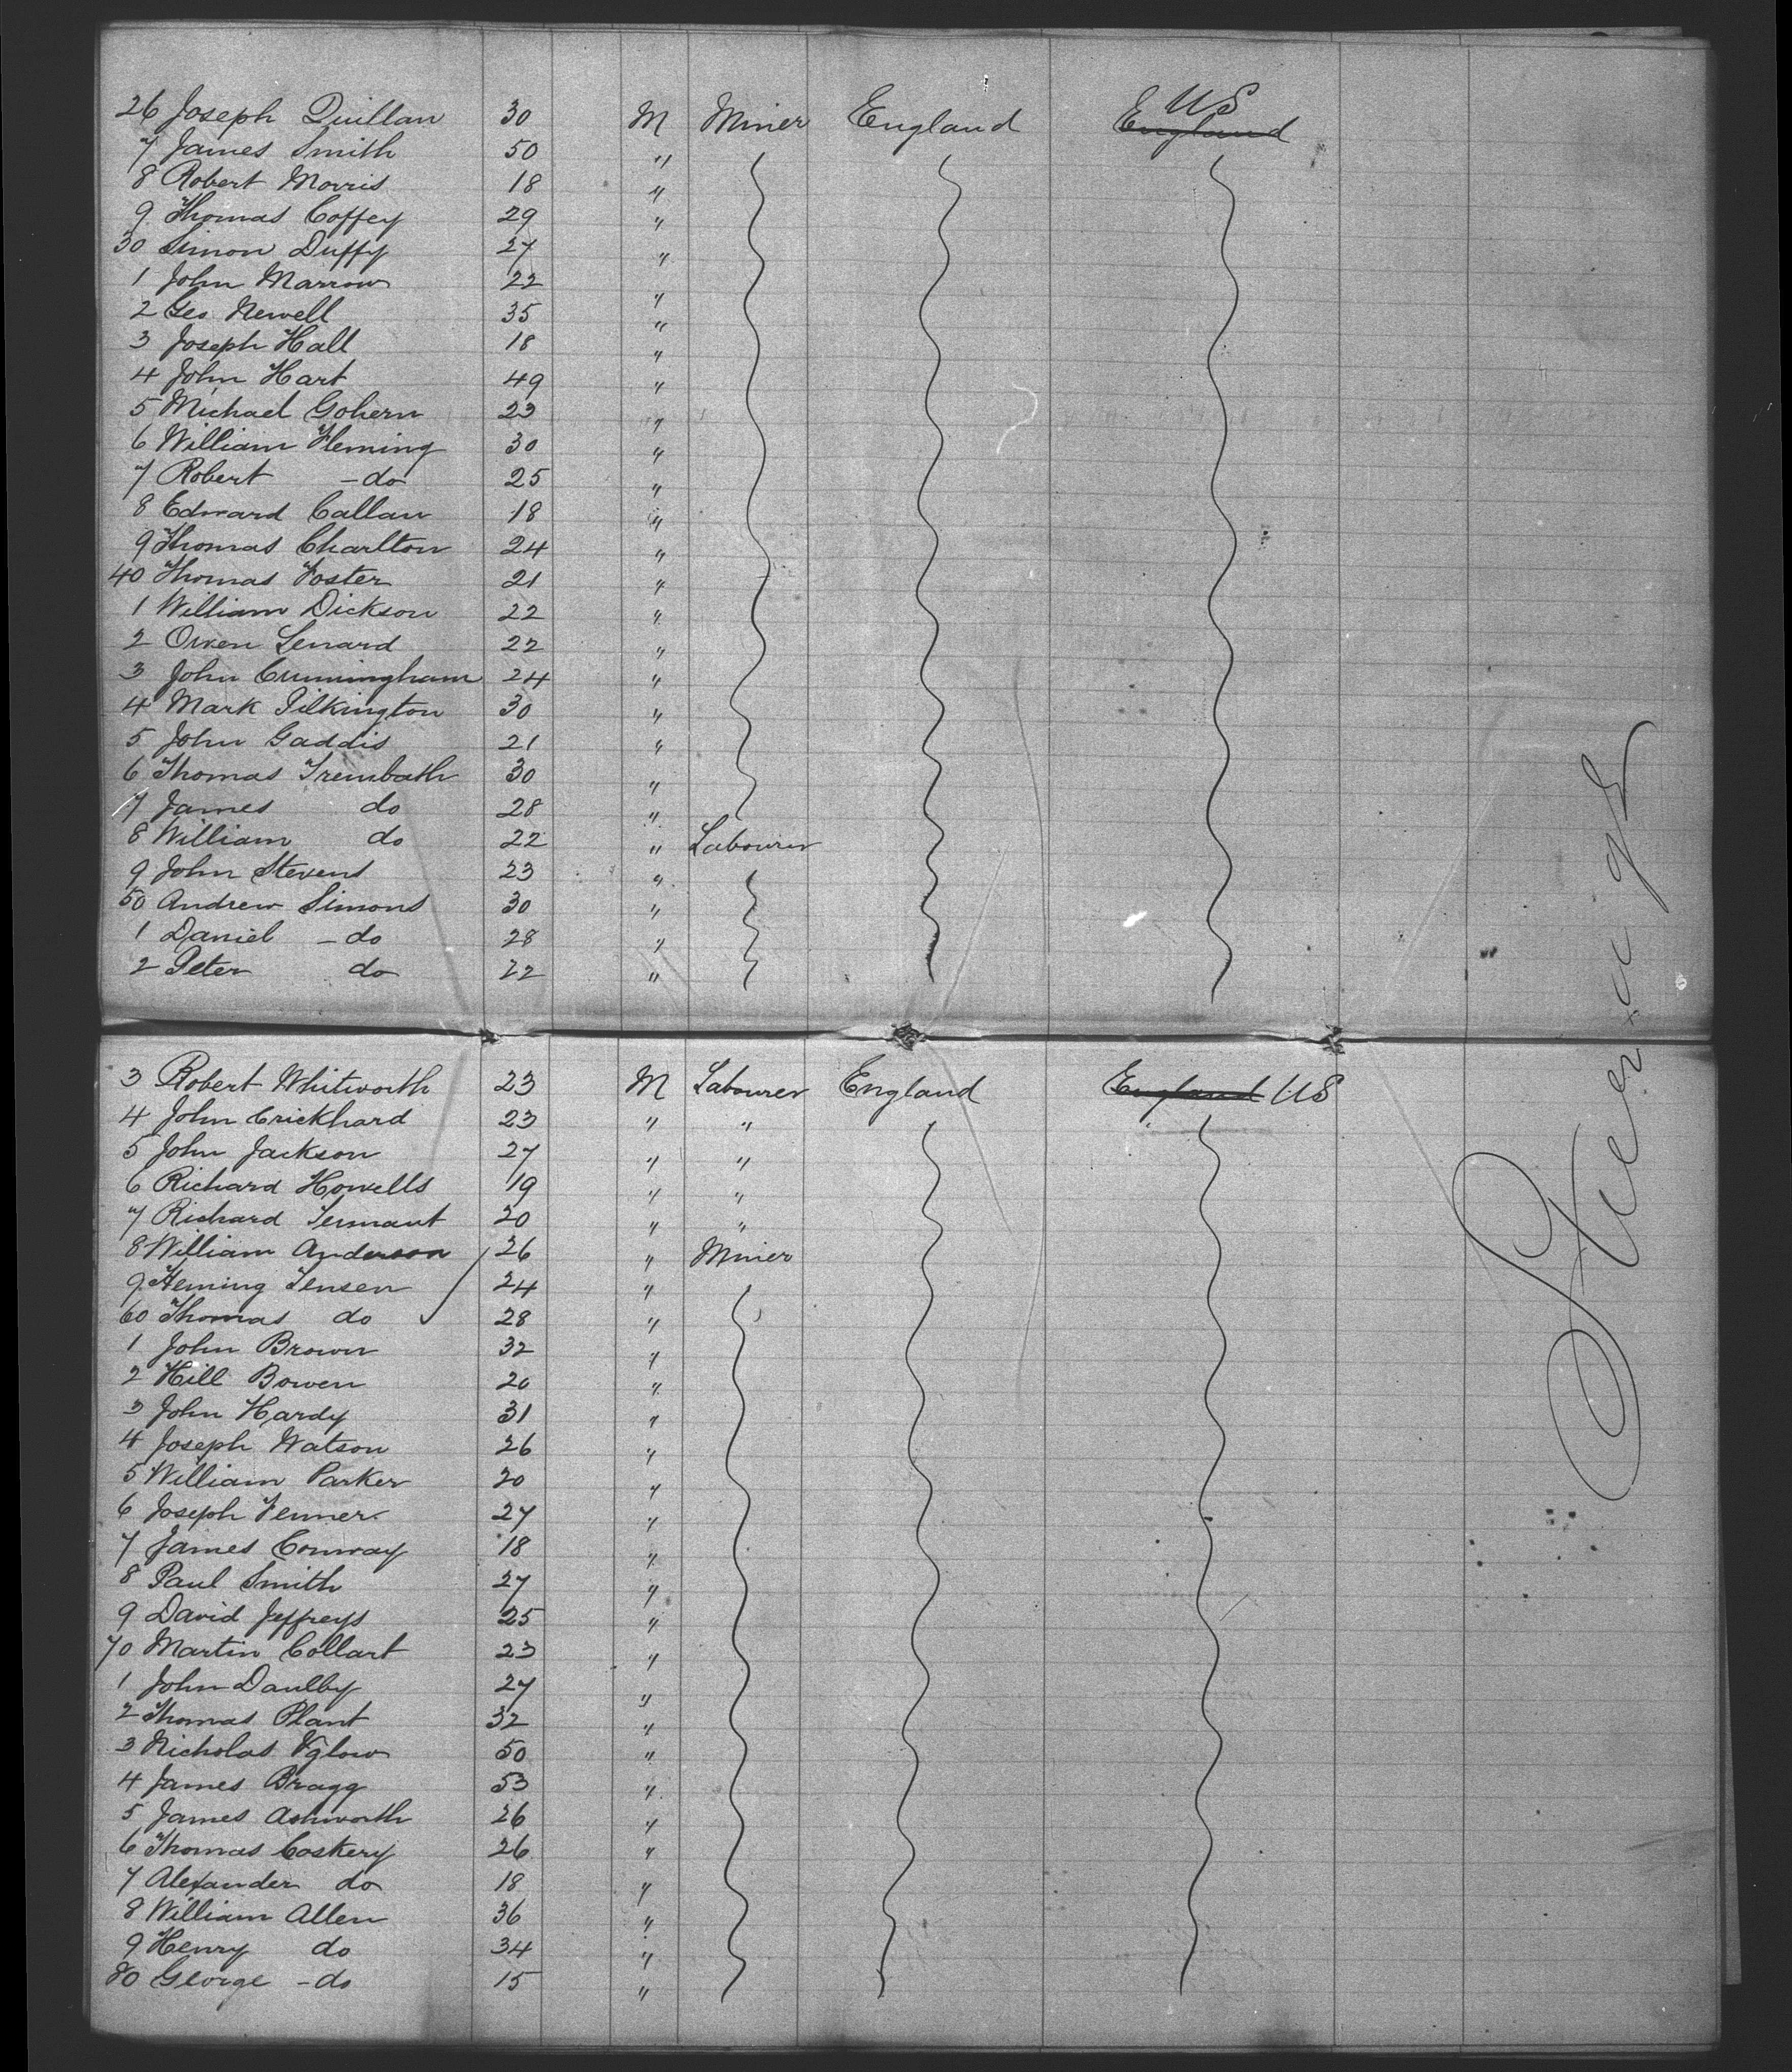 26 Joseph Quillan 30 M Miner England England US
7 James Smith 50 "
8 Robert Morris 18 "
9 Thomas Coffey 29 "
30 Simon Duffy 27 "
1 John Marrow 22 "
2 Geo Newell 35 "
3 Joseph Hall 18 "
4 John Hart 49 "
5 Michael Gohern 23 "
6 William Fleming 30 "
7 Robert - do 25 "
8 Edward Callan 18 "
9 Thomas Charlton 24 "
40 Thomas Foster 21 "
1 William Dickson 22 "
2 Owen Lenard 22 "
3 John Cunningham 24 "
4 Mark Pilkington 30 "
5 John Gaddis 21 "
6 Thomas Trembath 30 "
7 James do 28 "
8 William do 22 " Labourer
9 John Stevens 23 "
50 Andrew Simons 30 "
1 Daniel - do 28 "
2 Peter do 22 "
3 Robert Whitworth 23 M Labourer England England US
4 John Crickhard 23 " "
5 John Jackson 27 " "
6 Richard Howells 19 " "
7 Richard Tennant 20 " "
8 William Anderson 26 " Miner
9 Heming Jensen 24 "
60 Thomas do 28 "
1 John Brown 32 "
2 Hill Bowen 20 "
3 John Hardy 31 "
4 Joseph Watson 26 "
5 William Parker 20 "
6 Joseph Fenner 27 "
7 James Conway 18 "
8 Paul Smith 27 "
9 David Jeffreys 25 "
70 Martin Collart 23 "
1 John Daulby 27 "
2 Thomas Plant 32 "
3 Nicholas Vglow 50 "
4 James Bragg 53 "
5 James Ashworth 26 "
6 Thomas Coskery 26 "
7 Alexander do 18 "
8 William Allen 36 "
9 Henry do 34 "
80 George - do 15 "
Steerage